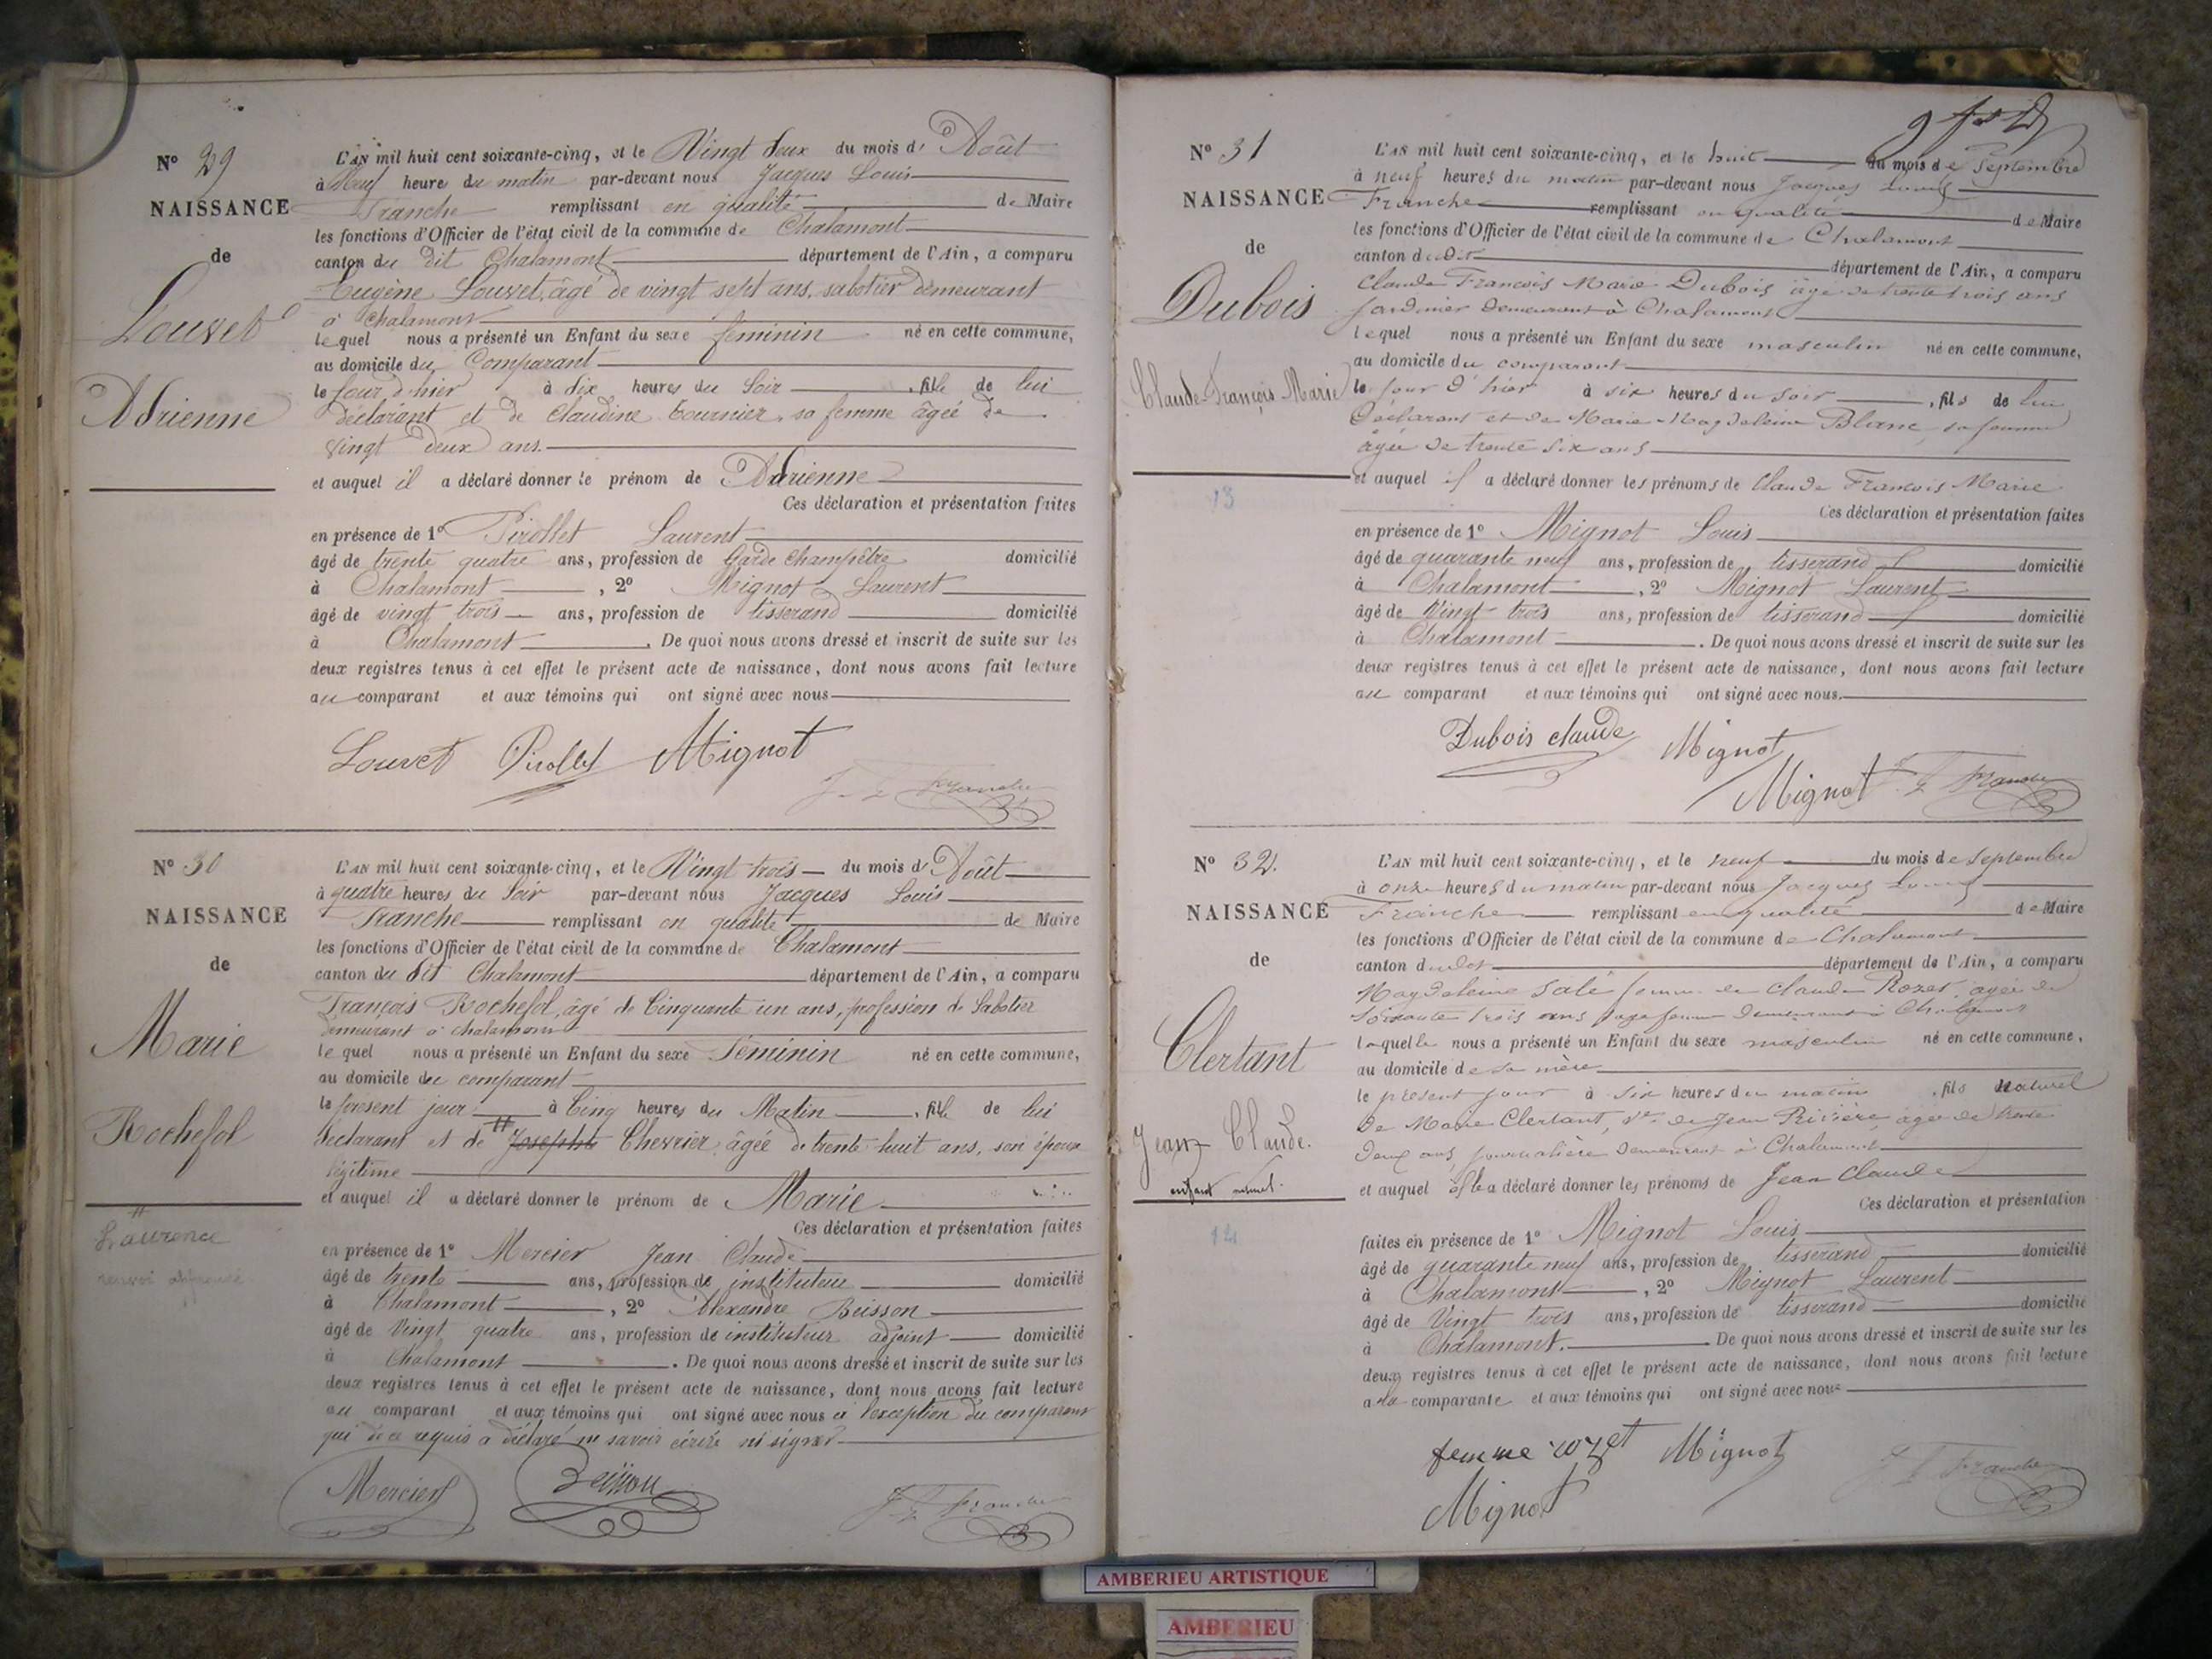 N° 29
NAISSANCE
de
Louvet
Adrienne
L'AN mil huit cent soixante-cinq, et le Vingt deux du mois d' Août
à Neuf heure du matin par-devant nous Jacques Louis
Franche remplissant en qualité de Maire
les fonctions d'Officier de l'état civil de la commune de Chalamont
canton du dit Chalamont département de l'Ain, a comparu
Eugène Louvet, âgé de vingt sept ans, sabotier demeurant
à Chalamont
lequel nous a présenté un Enfant du sexe féminin né en cette commune,
au domicile du Comparant
le jour d'hier à dix heures du soir , fille de lui
déclarant et de Claudine Tournier, sa femme âgée de
vingt deux ans.
et auquel il a déclaré donner le prénom de Adrienne
Ces déclaration et présentation faites
en présence de 1° Pirollet Laurent
âgé de trente quatre ans, profession de Garde champêtre domicilié
à Chalamont , 2° Mignot Laurent
âgé de vingt trois ans, profession de tisserand domicilié
à Chalamont . De quoi nous avons dressé et inscrit de suite sur les
deux registres tenus à cet effet le présent acte de naissance, dont nous avons fait lecture
au comparant et aux témoins qui ont signé avec nous
Louvet Pirollet Mignot
J L Franche
N° 30
NAISSANCE
de
Marie
Rochefol
L'AN mil huit cent soixante-cinq, et le Vingt trois du mois d' Août
à quatre heures du soir par-devant nous Jacques Louis
Franche remplissant en qualité de Maire
les fonctions d'Officier de l'état civil de la commune de Chalamont
canton du dit Chalamont département de l'Ain, a comparu
François Rochefol, âgé de Cinquante un ans, profession de Sabotier
demeurant à chalamont
lequel nous a présenté un Enfant du sexe Féminin né en cette commune,
au domicile du comparant
le présent jour à Cinq heures du Matin , fille de lui
déclarant et de # Josephte Chevrier, âgée de trente huit ans, son épouse
légitime
et auquel il a déclaré donner le prénom de Marie
Ces déclaration et présentation faites
# Laurence
renvoi approuvé
en présence de 1° Mercier Jean Claude
âgé de trente ans, profession de instituteur domicilié
à Chalamont , 2° Alexandre Buisson
âgé de Vingt quatre ans, profession de instituteur adjoint domicilié
à Chalamont . De quoi nous avons dressé et inscrit de suite sur les
deux registres tenus à cet effet le présent acte de naissance, dont nous avons fait lecture
au comparant et aux témoins qui ont signé avec nous à l'exception du comparant
qui de ce requis a déclaré ne savoir écrire ni signer
Mercier
J L Franche
N° 31
NAISSANCE
de
Dubois
Claude-François Marie
13
L'AN mil huit cent soixante-cinq, et le huit du mois de Septembre
à neuf heures du matin par-devant nous Jacques Louis
Franche remplissant en qualité de Maire
les fonctions d'Officier de l'état civil de la commune de Chalamont
canton dudit département de l'Ain, a comparu
Claude François Marie Dubois âgé de trente trois ans
jardinier demeurant à Chalamont
lequel nous a présenté un Enfant du sexe masculin né en cette commune,
au domicile du comparant
le jour d'hier à six heures du soir , fils de lui
Déclarant et de Marie-Magdeleine Blanc, sa femme
âgée de trente six ans
et auquel il a déclaré donner les prénoms de Claude François Marie
Ces déclaration et présentation faites
en présence de 1° Mignot Louis
âgé de quarante neuf ans, profession de tisserand domicilié
à Chalamont , 2° Mignot Laurent
âgé de Vingt trois ans, profession de tisserand domicilié
à Chalamont . De quoi nous avons dressé et inscrit de suite sur les
deux registres tenus à cet effet le présent acte de naissance, dont nous avons fait lecture
au comparant et aux témoins qui ont signé avec nous.
Dubois claude Mignot
Mignot J L Franche
N° 32.
NAISSANCE
de
Clertant
Jean Claude.
enfant naturel.
14
L'AN mil huit cent soixante-cinq, et le neuf du mois de Septembre
à onze heures du matin par-devant nous Jacques Louis
Franche remplissant en qualité de Maire
les fonctions d'Officier de l'état civil de la commune de Chalamont
canton dudit département de l'Ain, a comparu
Magdeleine Salé femme de Claude Rozet, agée de
soixante trois ans sage femme demeurant à Chalamont
laquelle nous a présenté un Enfant du sexe masculin né en cette commune,
au domicile de sa mère
le présent jour à six heures du matin , fils naturel
De Marie Clertant, Ve de Jean Rivière, agée de trente
deux ans, journalière demeurant à Chalamont
et auquel elle a déclaré donner les prénoms de Jean Claude
Ces déclaration et présentation
faites en présence de 1° Mignot Louis
âgé de quarante neuf ans, profession de tisserand domicilié
à Chalamont , 2° Mignot Laurent
âgé de Vingt trois ans, profession de tisserand domicilié
à Chalamont. De quoi nous avons dressé et inscrit de suite sur les
deux registres tenus à cet effet le présent acte de naissance, dont nous avons fait lecture
a la comparante et aux témoins qui ont signé avec nous
femme rozet Mignot
Mignot J L Franche
AMBERIEU ARTISTIQUE
AMBERIEU